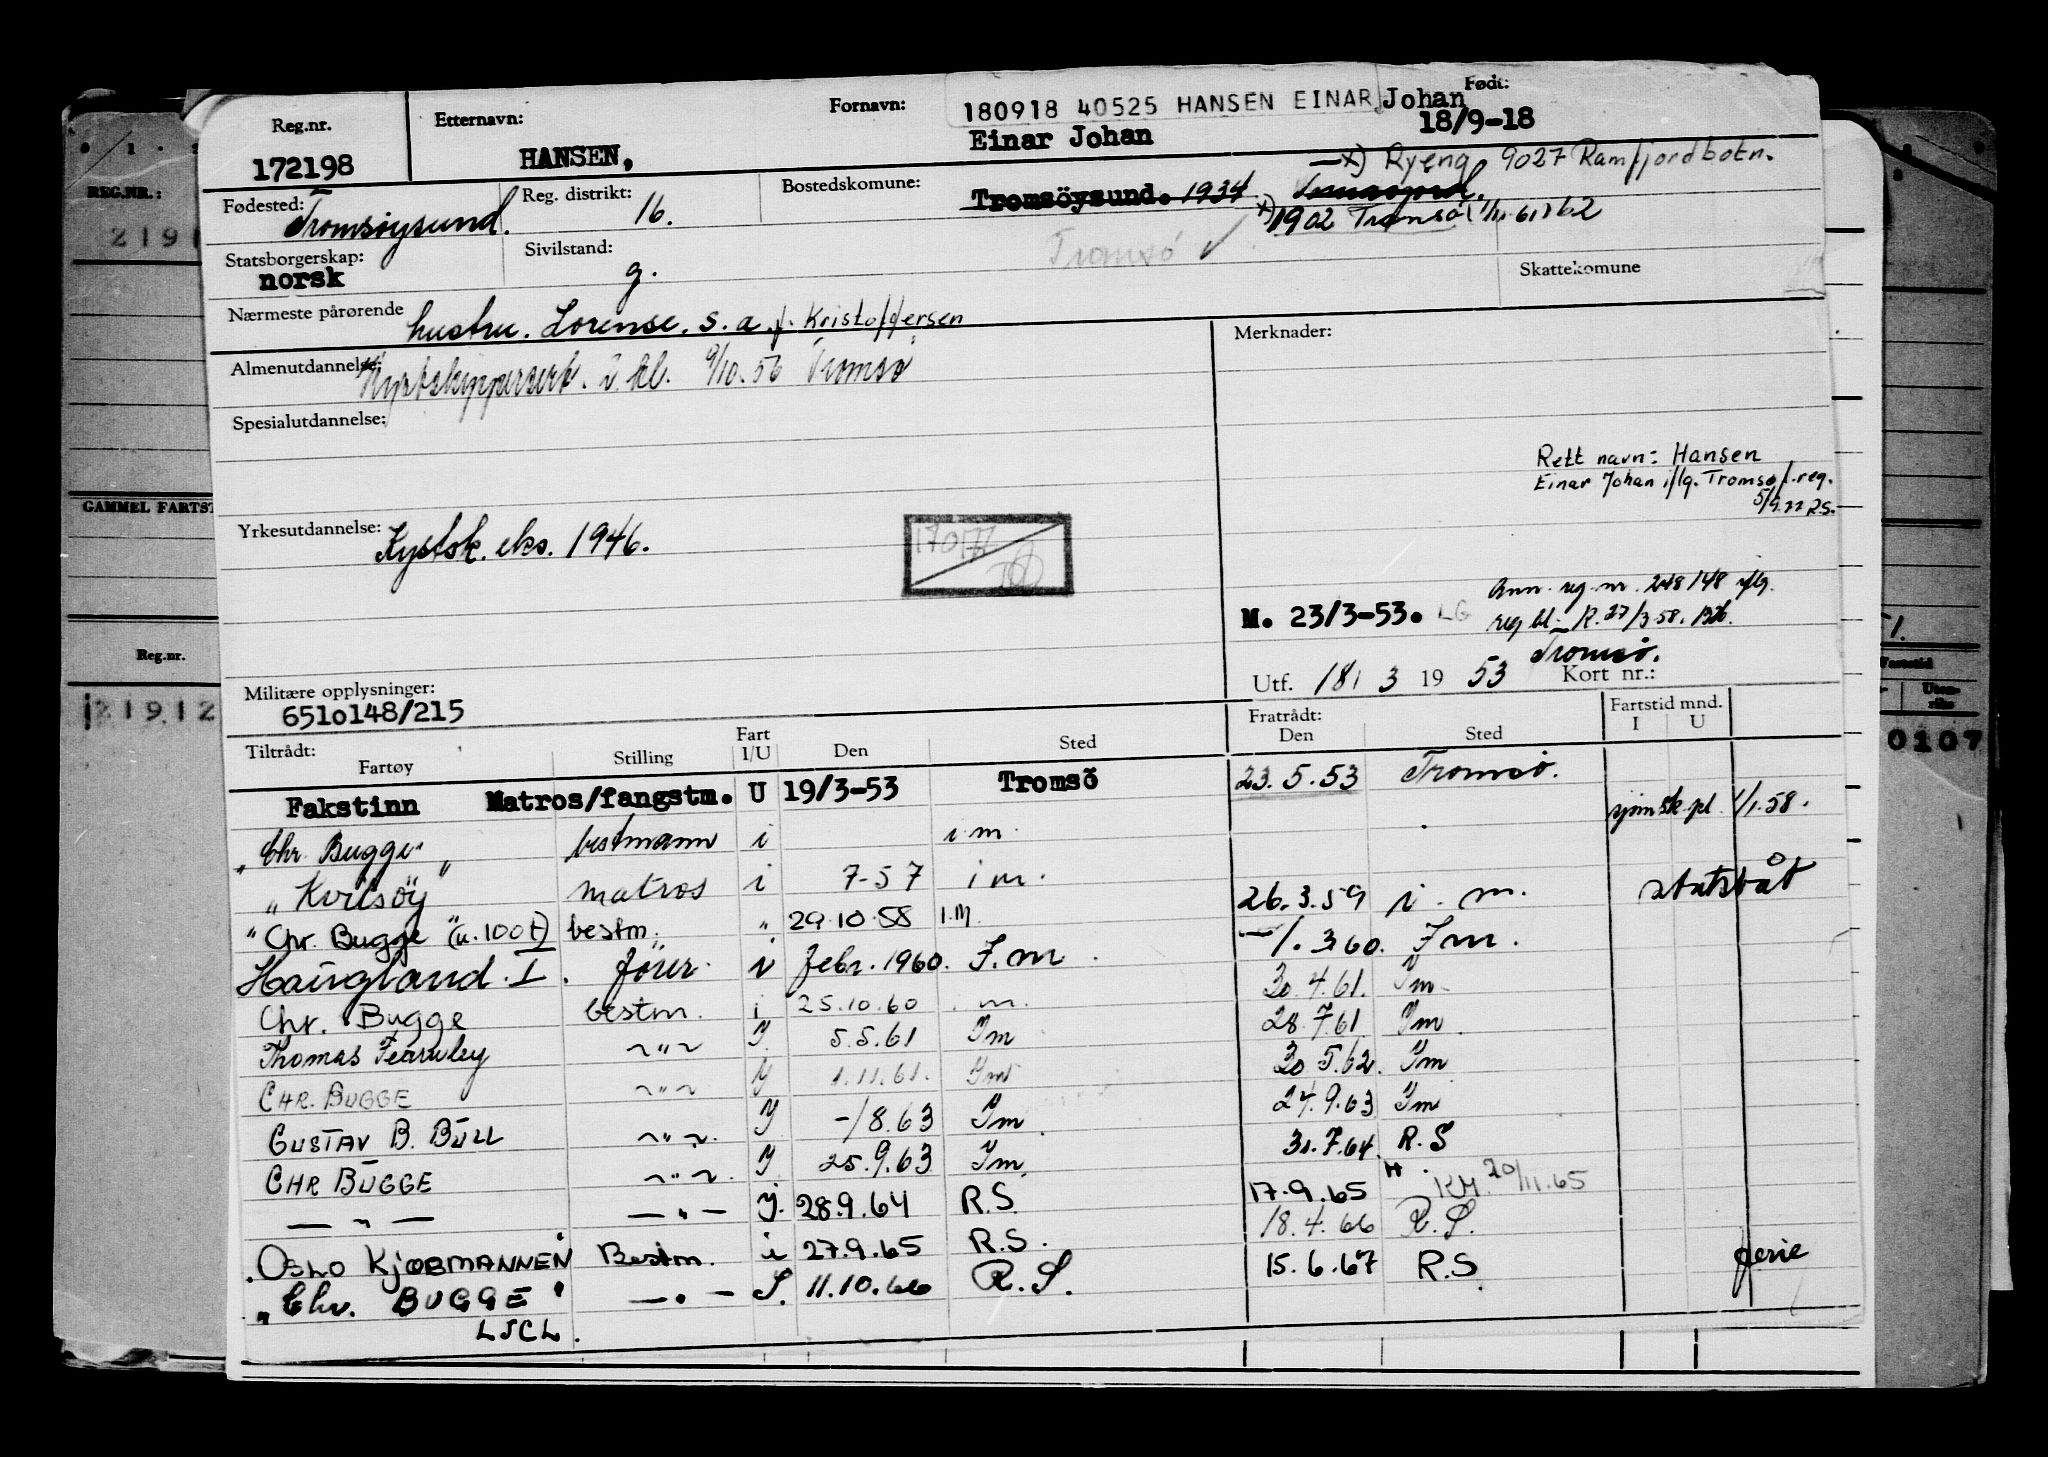 Reg.nr. 172198
Etternavn: HANSEN,
Fornavn: Einar Johan
180918 40525 HANSEN EINAR Johan
Født: 18/9-18
x) Ryeng, 9027 Ramfjordbotn.
Fødested: Tromsøysund.
Reg. distrikt: 16.
Bostedskomune: Tromsöysund. 1934
x) 1902 Tromsø
Tromsø
Statsborgerskap: norsk
Sivilstand: g.
Skattekomune
Nærmeste pårørende hustru. Lorense. s. a. f. Kristoffersen
Almenutdannelse: Kystskippersert. 2 kl. 9/10.56 Tromsø
Merknader:
Spesialutdannelse:
Rett navn: Hansen
Einar Johan iflg. Tromsø f.reg.
R.S.
Yrkesutdannelse: Kystsk. eks. 1946.
Ann. reg. nr. 248/48 iflg.
M. 23/3-53. LG
reg bl. R. 27/3 58.
Tromsø.
Utf. 18/ 3 19 53 Kort nr.:
Militære opplysninger:
651o148/215
Tiltrådt: Fartøy Stilling Fart I/U Den Sted Fratrådt: Den Sted Fartstid mnd. I U
Fakstinn Matros/fangstm. U 19/3-53 Tromsö 23.5.53 Tromsø.
"Chr. Bugge" bestmann i i.m. 1/1.58.
"Kvitsöy" matros i 7-57 i m. 26.3.59 i.m. statsbåt
"Chr. Bugge" (u. 100 t) bestm. " 29.10.58 I.M. -/.3 60. I m.
Haugland. I. fører i febr. 1960. I.m.
30.4.61. Im
Chr. Bugge bestm. i 25.10.60 i m. 28.7.61 Im
Thomas Fearnley ~"~ I 5.5.61 Im 30 5.62. Im
CHR. BUGGE ~"~ I 1.11.61. Im 24.9.63 Im
GUSTAV B. BULL ~"~ I -/8.63 Im 31.7.64. R.S
CHR BUGGE ~"~ I 25.9.63 Im.
— " — — " — I. 28.9.64 R.S. 17.9.65 20/11.65
18.4.66 R.S.
OSLO KJØBMANNEN Bestm. i 27.9.65 R.S. 15.6.67 R.S ferie
"Chr. BUGGE" — " — 11.10.66 R.S.
LJCL.
REG.NR.:
GAMMEL FARTST
Reg.nr.
21912
0107